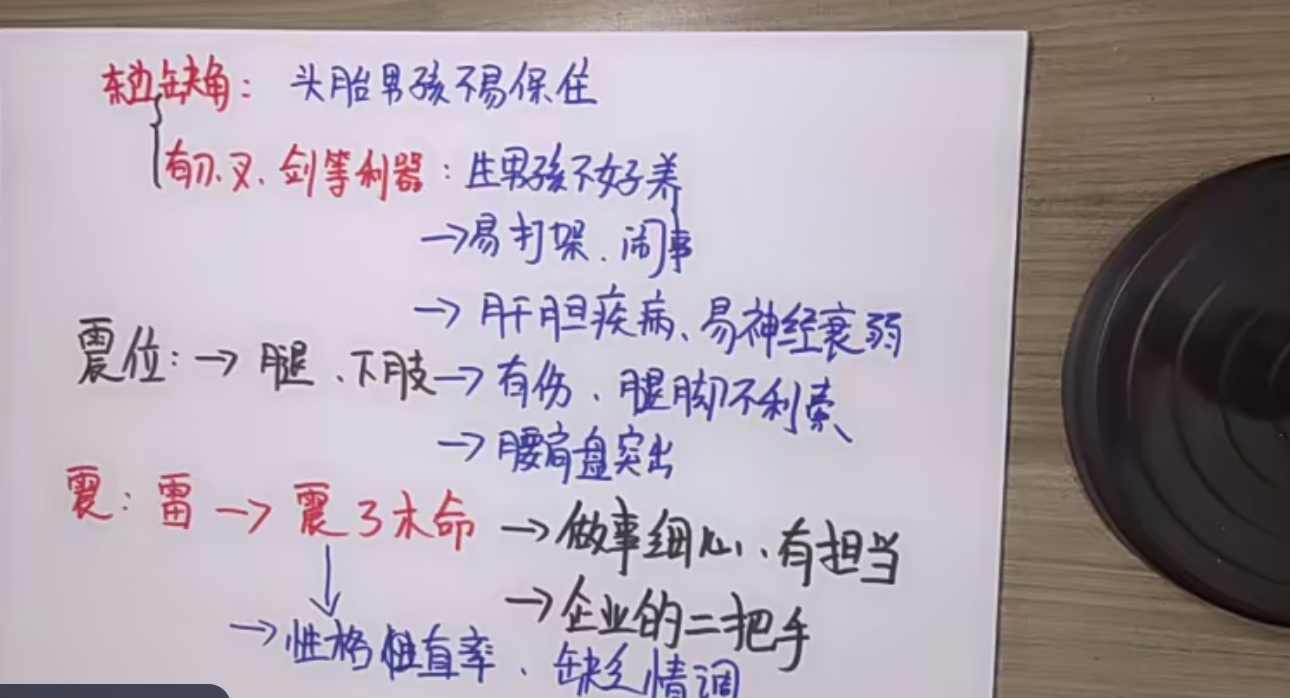 东边缺角：头胎男孩不易保住
有刀、叉、剑等利器：生男孩不好养
→易打架、闹事
→肝胆疾病、易神经衰弱
震位：→腿、下肢→有伤、腿脚不利索
→腰肩盘突出
震：雷→震3木命→做事细心、有担当
→企业的二把手
→性格 直率、缺乏情调